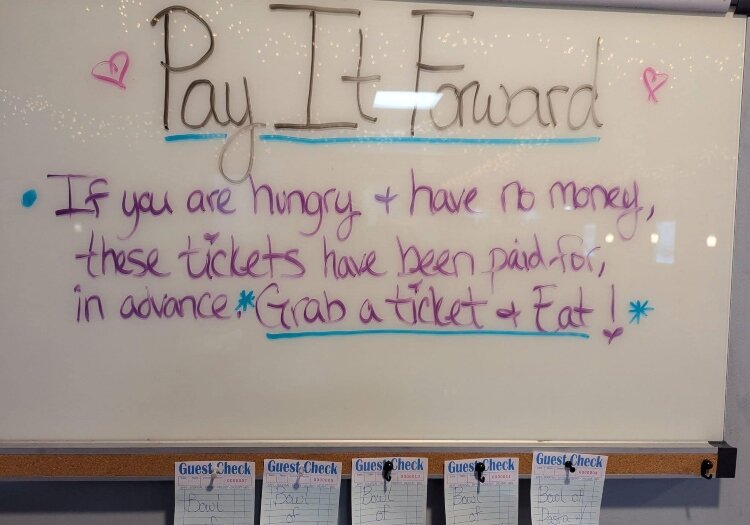 Pay It Forward
• If you are hungry + have no money,
these tickets have been paid for,
in advance. *Grab a ticket + Eat! *
Guest Check Guest Check Guest Check Guest Check Guest Check
Bowl Bowl Bowl Bowl Bowl of
of of of of